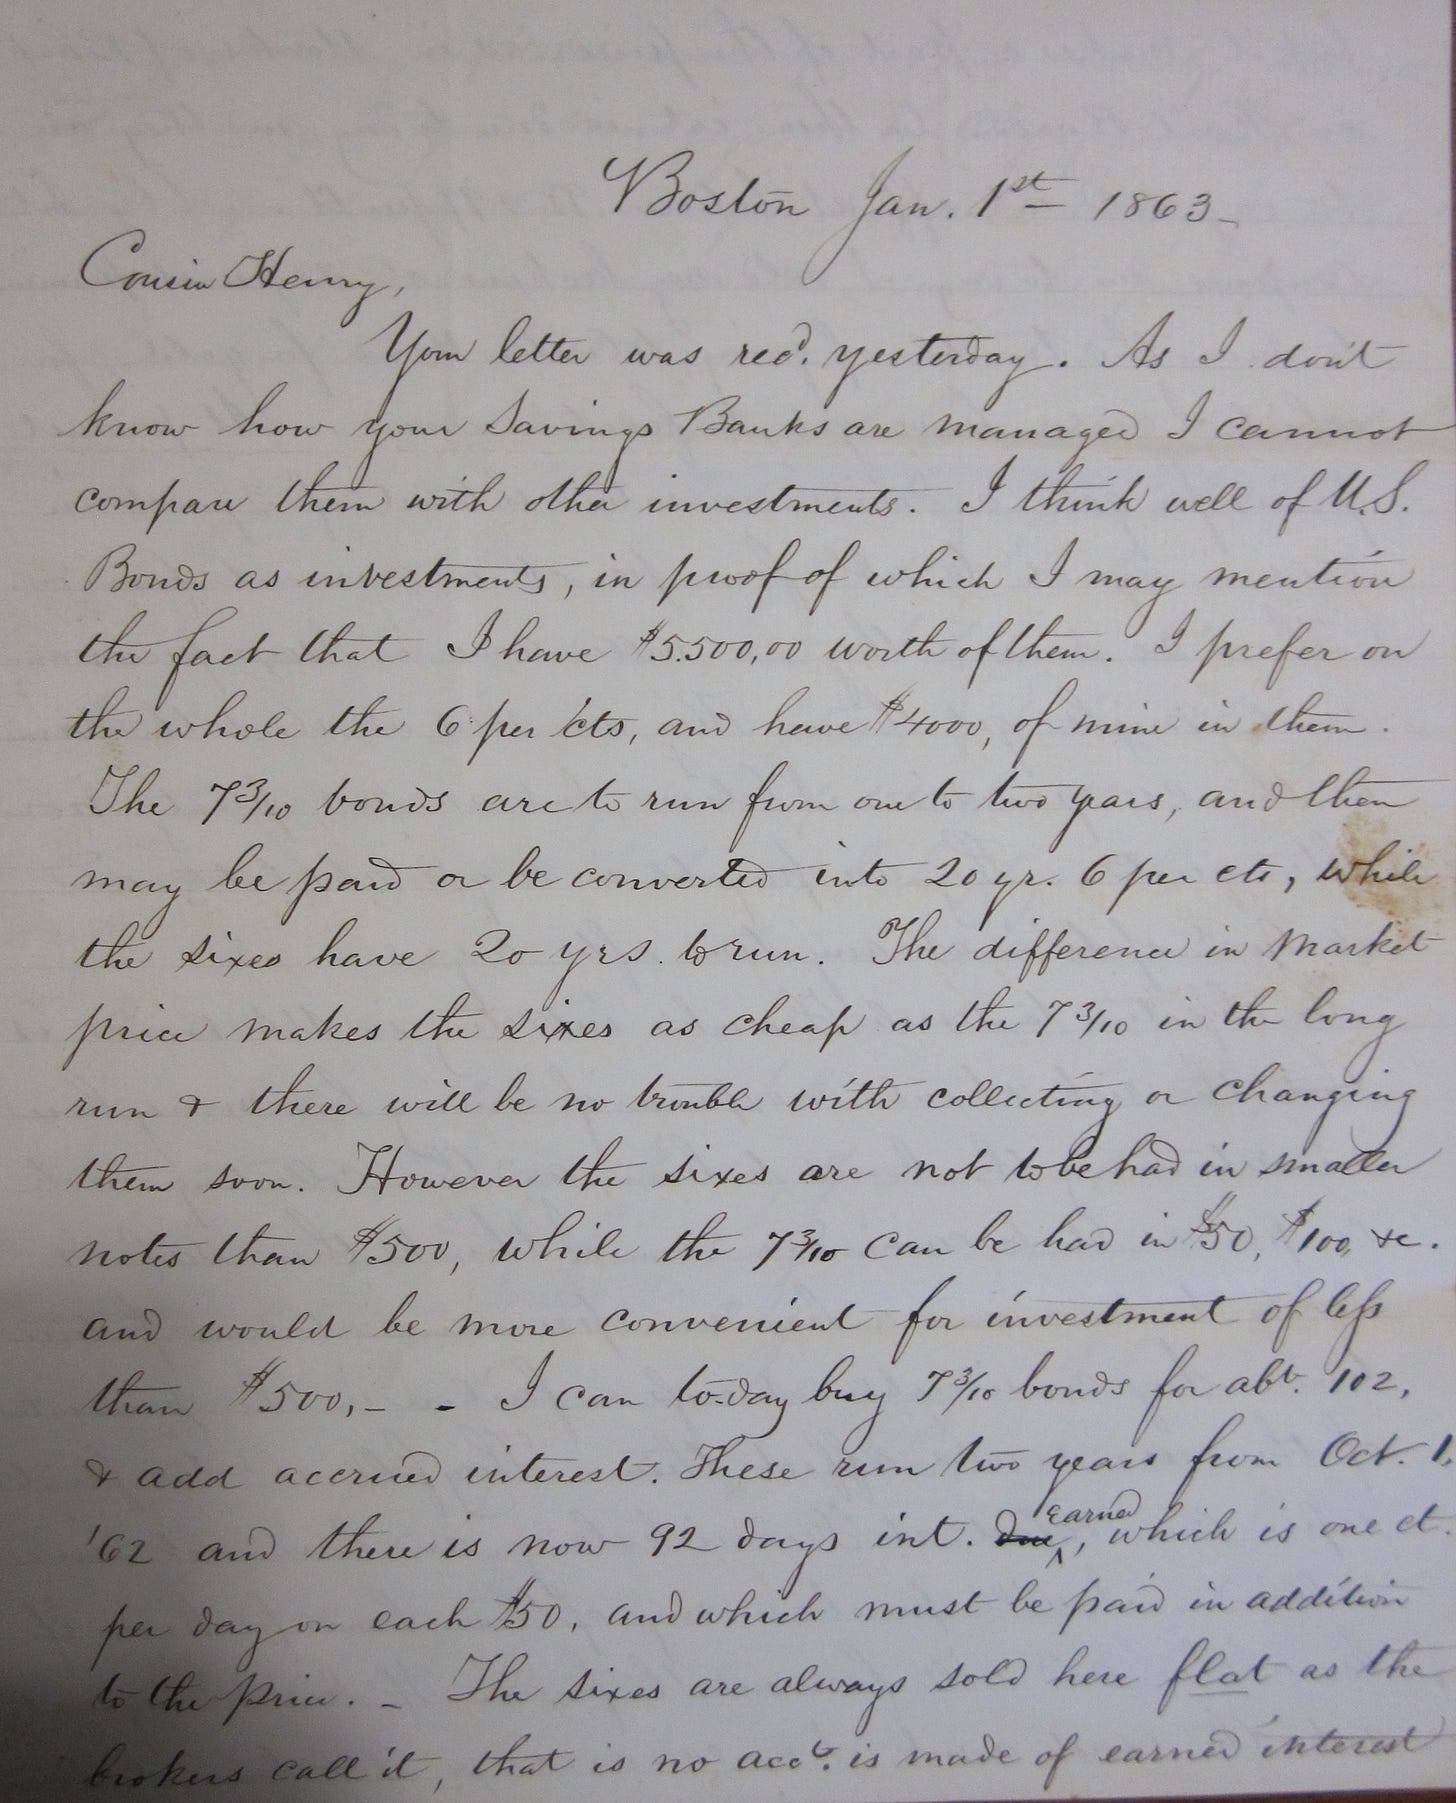 Boston Jan. 1st 1863_
Cousin Henry,
Your letter was recd. yesterday. As I don't
know how your Savings Banks are managed I cannot
compare them with other investments. I think well of U.S.
Bonds as investments, in proof of which I may mention
the fact that I have $5.500,00 worth of them. I prefer on
the whole the 6 per cts, and have $4000, of mine in them.
The 7 3/10 bonds are to run from one to two years, and then
may be paid or be converted into 20 yr. 6 per cts, while
the sixes have 20 yrs. to run. The difference in market
price makes the sixes as cheap as the 7 3/10 in the long
run & there will be no trouble with collecting or changing
them soon. However the sixes are not to be had in smaller
notes than $500, while the 7 3/10 can be had in $50, $100, &c.
and would be more convenient for investment of less
than $500,- - I can to-day buy 7 3/10 bonds for abt. 102,
& add accrued interest. These run two years from Oct. 1,
'62 and there is now 92 days int. due earned, which is one ct.
per day on each $50, and which must be paid in addition
to the price. _ The sixes are always sold here flat as the
brokers call it, that is no acct. is made of earned interest